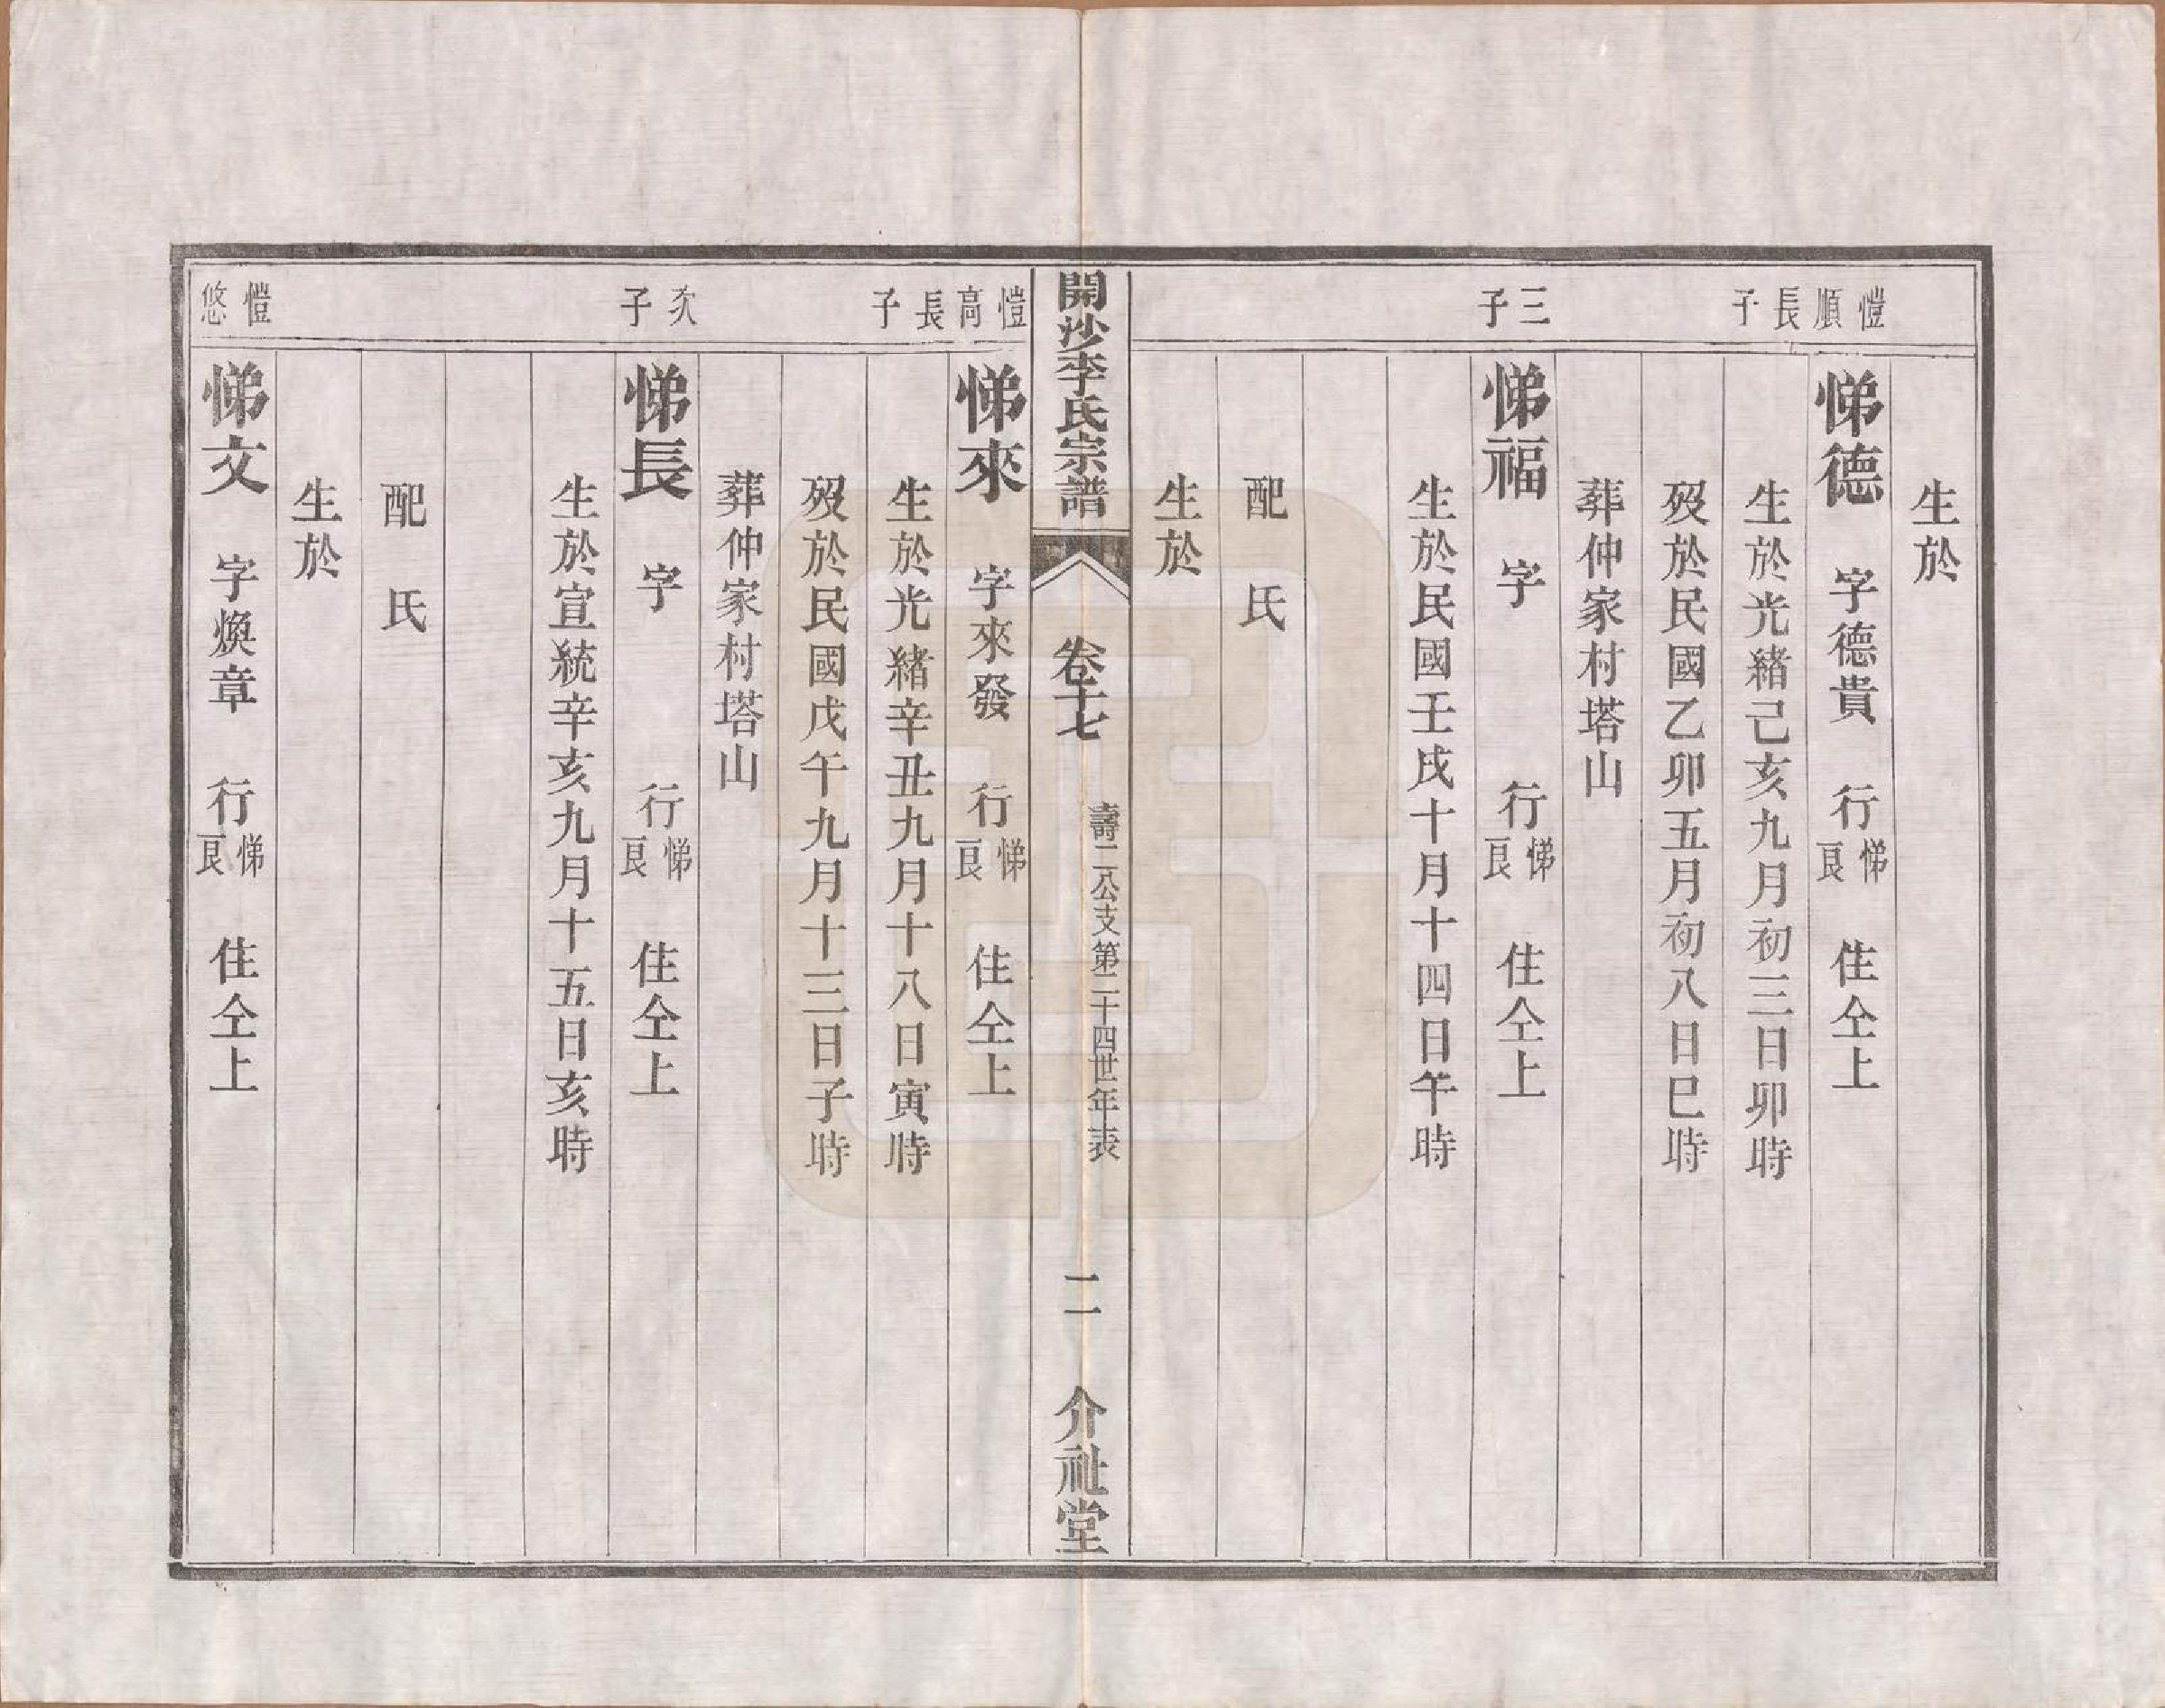 生於
愷順長子
悌德 字德貴 行悌良 住仝上
生於光緒己亥九月初三日卯時
歿於民國乙卯五月初八日巳時
葬仲家村塔山
三子
悌福 字 行悌良 住仝上
生於民國壬戌十月十四日午時
配 氏
生於
開沙李氏宗譜 卷十七 壽二公支第二十四世年表 二 介祉堂
愷高長子
悌來 字來發 行悌良 住仝上
生於光緒辛丑九月十八日寅時
歿於民國戊午九月十三日子時
葬仲家村塔山
次子
悌長 字 行悌良 住仝上
生於宣統辛亥九月十五日亥時
配 氏
生於
愷悠
悌文 字煥章 行悌良 住仝上